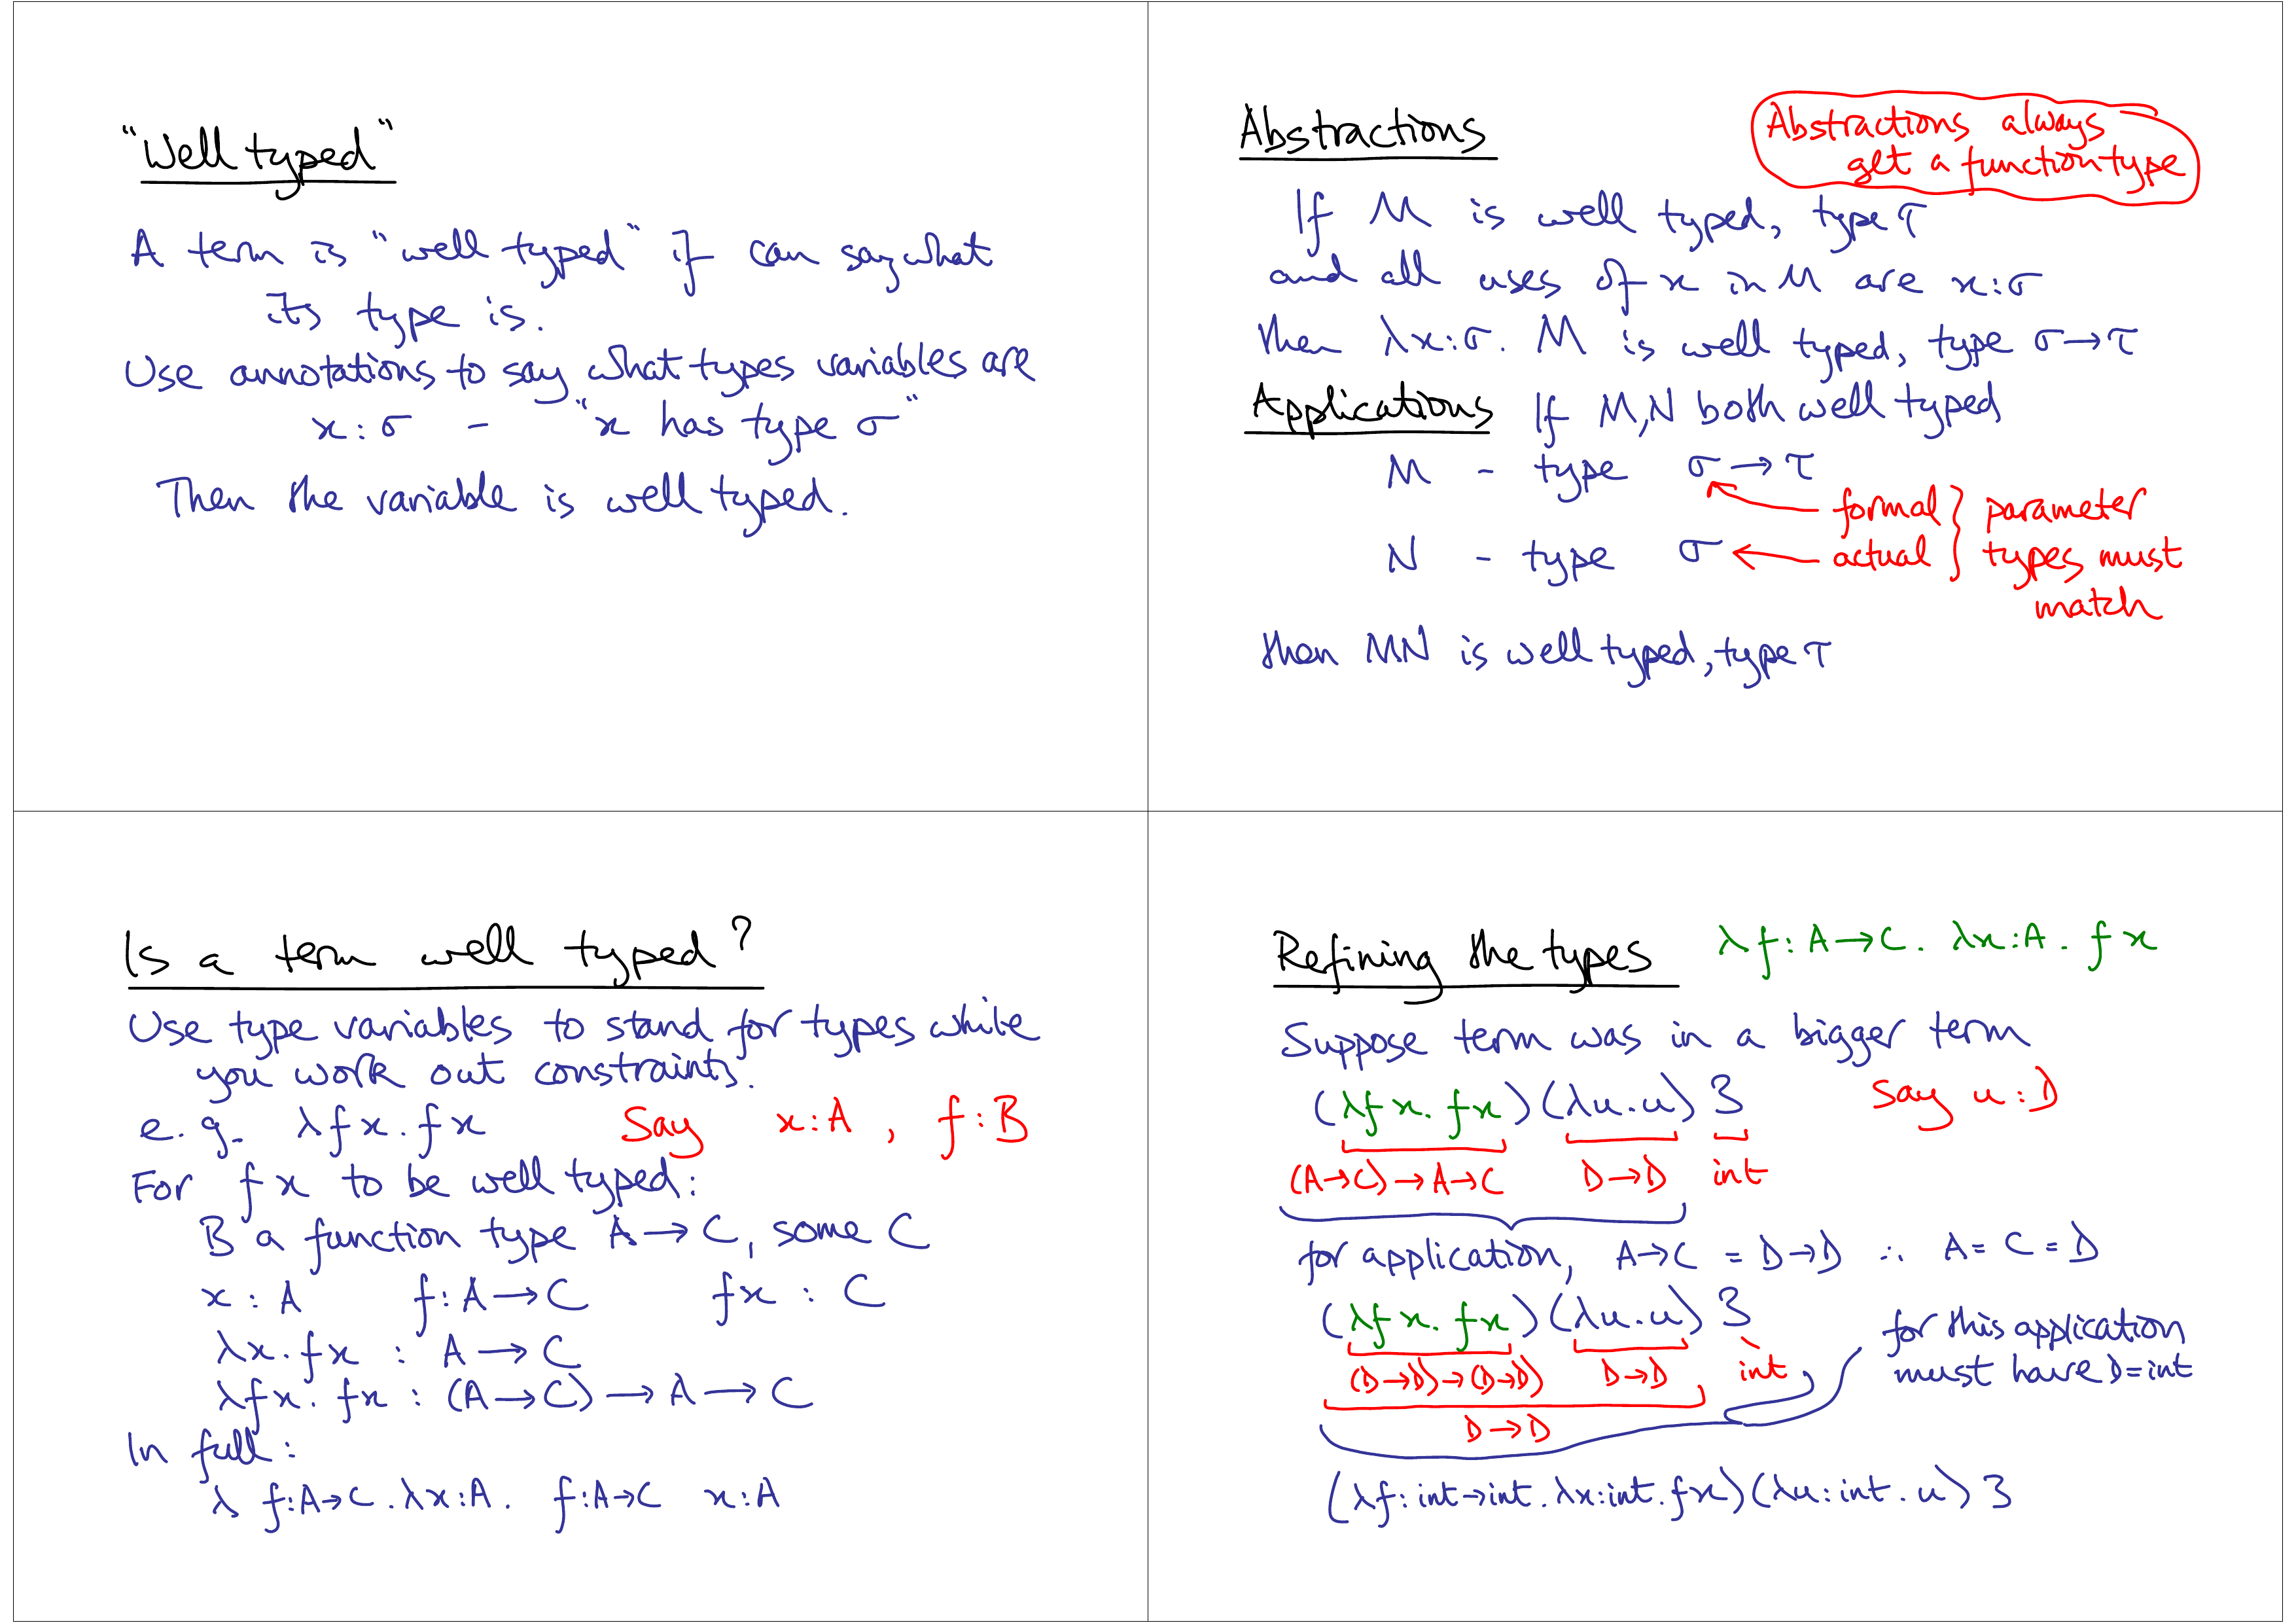 "Well typed"
A term is "well typed" if can say what
its type is.
Use annotations to say what types variables are
x:σ - "x has type σ"
Then the variable is well typed.
Abstractions
Abstractions always
get a function type
If M is well typed, type τ
and all uses of x in M are x:σ
then λx:σ. M is well typed, type σ→τ
Applications If M,N both well typed
M - type σ→τ
formal } parameter
N - type σ actual } types must
match
then MN is well typed, type τ
Is a term well typed?
Use type variables to stand for types while
you work out constraints.
e.g. λfx.fx Say x:A, f:B
For fx to be well typed:
B a function type A→C, some C
x:A f:A→C fx:C
λx.fx : A→C
λfx.fx : (A→C)→A→C
In full:
λ f:A→C.λx:A. f:A→C x:A
Refining the types λf:A→C. λx:A. fx
Suppose term was in a bigger term
(λfx.fx)(λu.u) 3 Say u:D
(A→C)→A→C D→D int
for application, A→C = D→D ∴ A=C=D
(λfx.fx)(λu.u) 3
for this application
must have D=int
(D→D)→(D→D) D→D int
D→D
(λf:int→int.λx:int.fx)(λu:int.u) 3